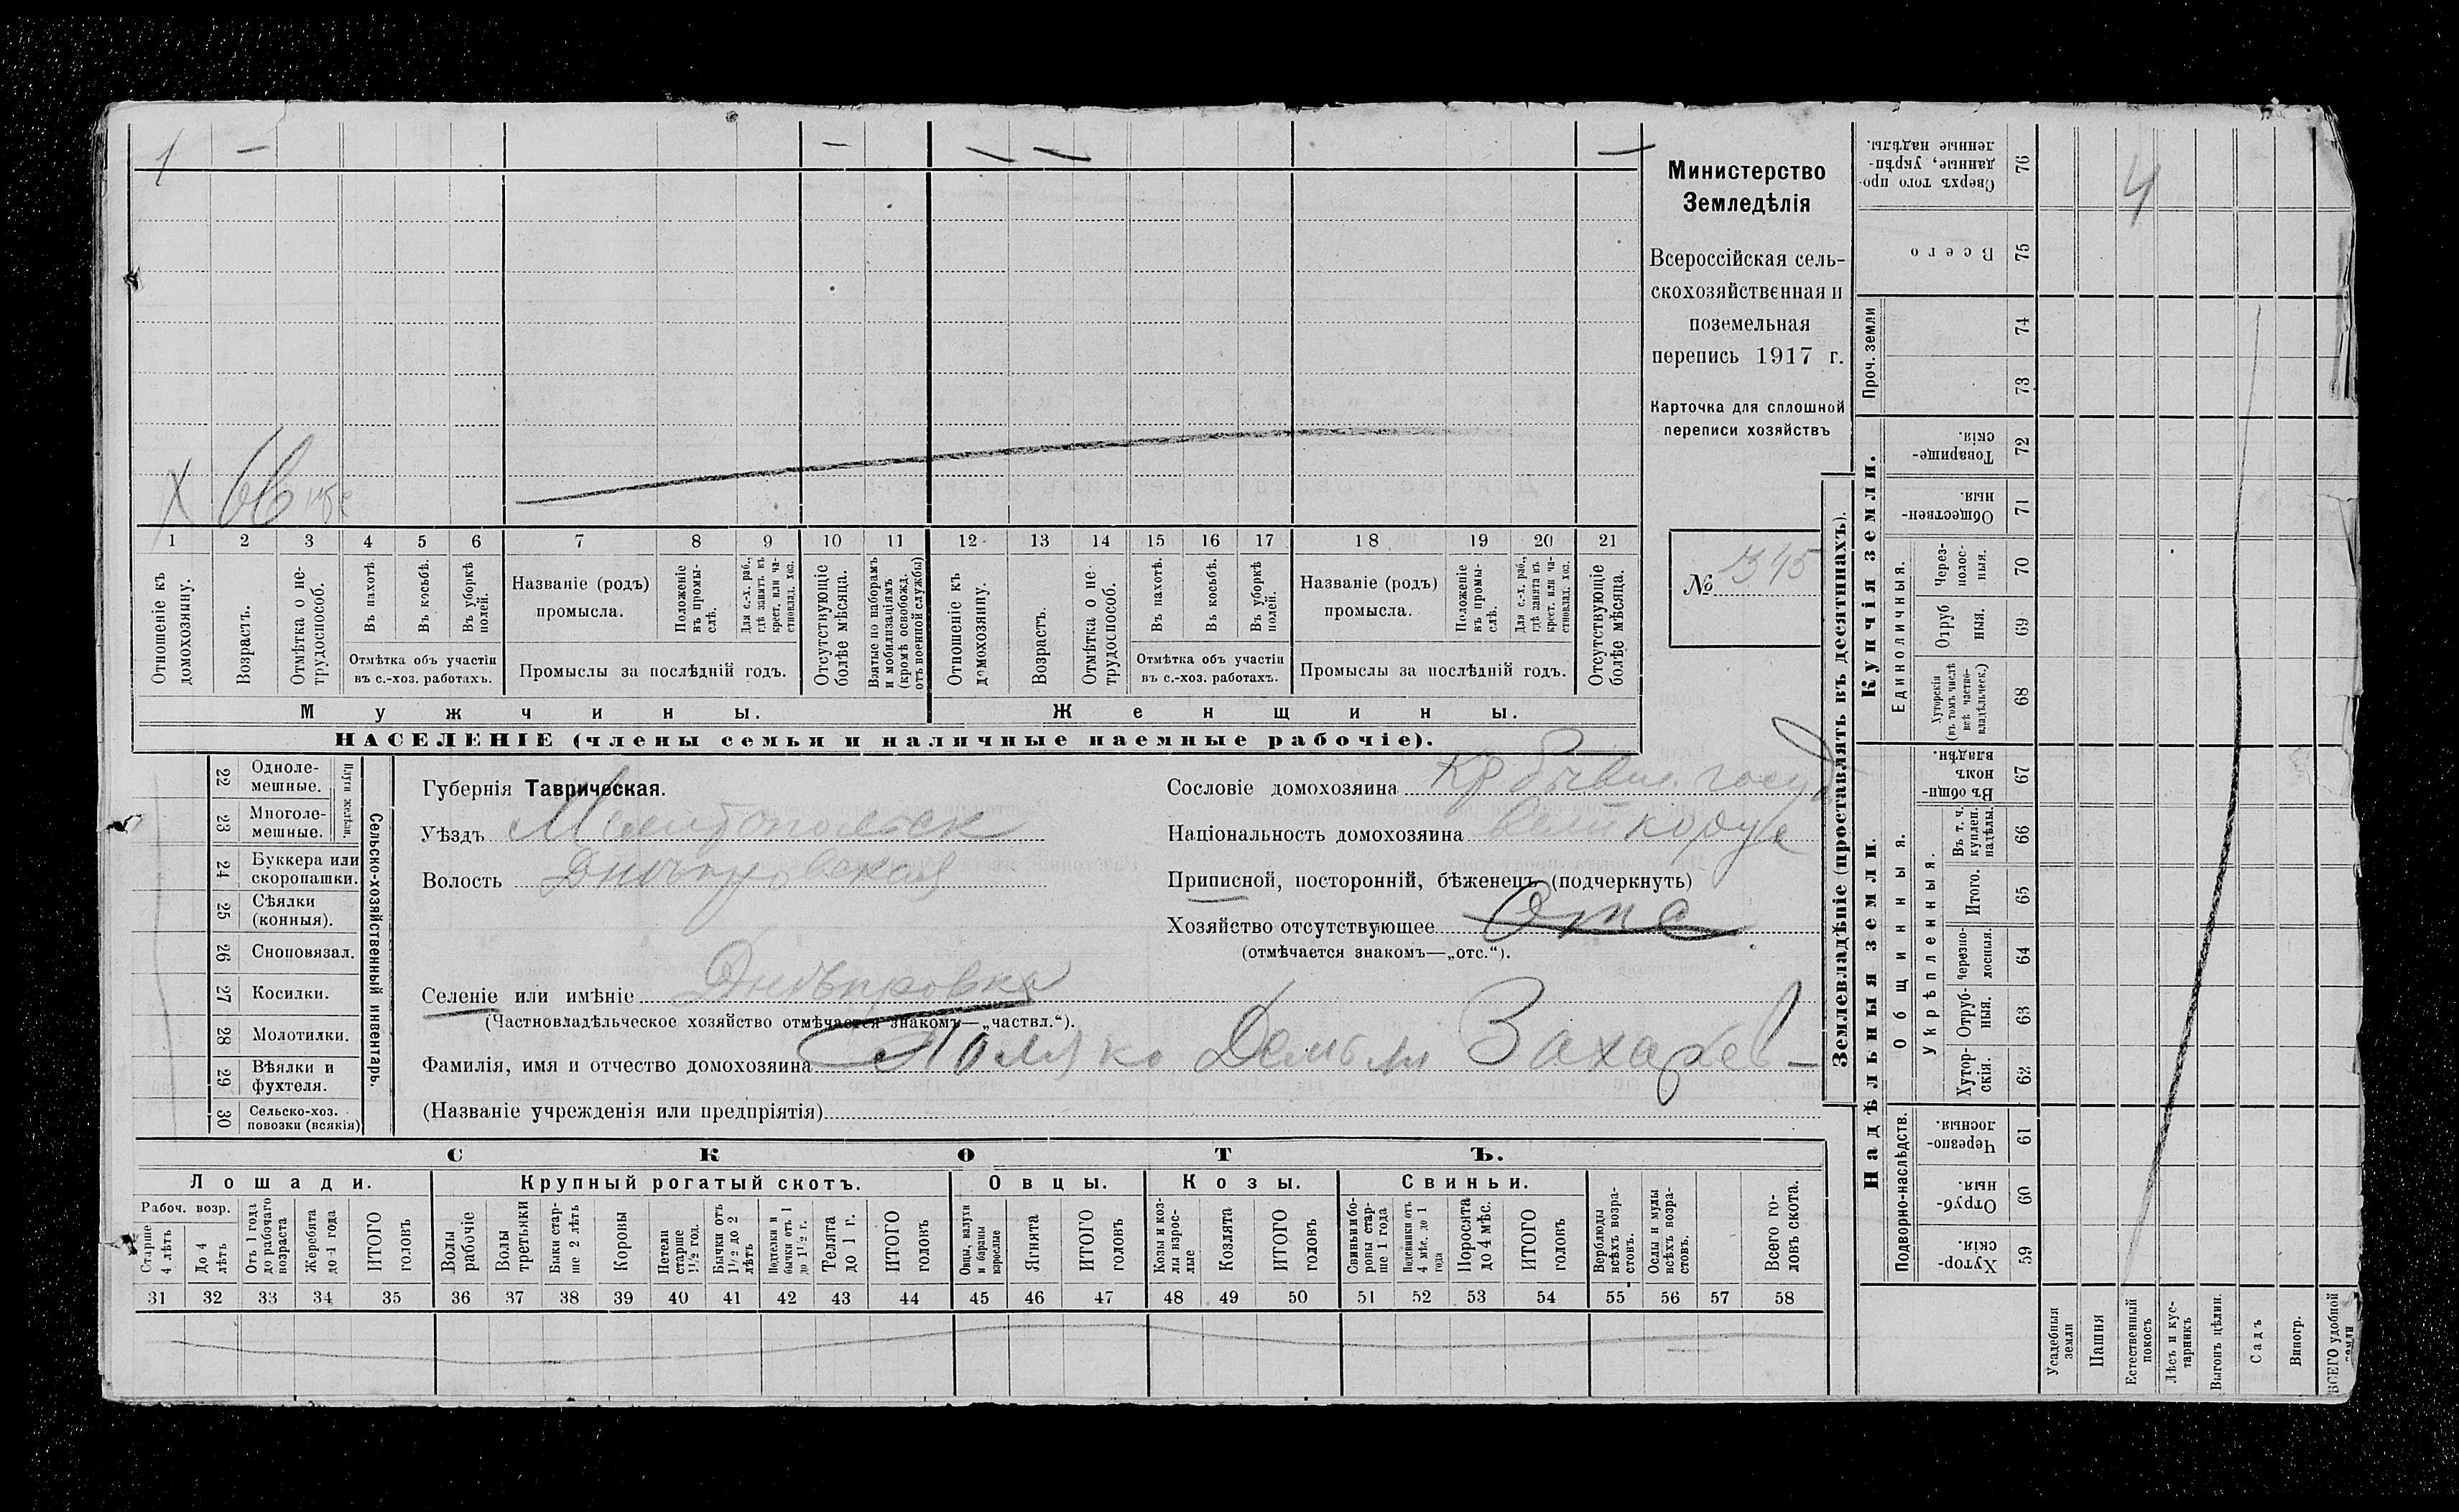 1 — — — — —
X 66
1 2 3 4 5 6 7 8 9 10 11 12 13 14 15 16 17 18 19 20 21
Отношеніе къ домохозяину.
Возрастъ.
Отмѣтка о не-трудоспособ.
Въ пахотѣ.
Въ косьбѣ.
Въ уборкѣ полей.
Отмѣтка объ участіи
въ с.-хоз. работахъ.
Названіе (родъ)
промысла.
Положеніе въ промы-слѣ.
Для с.-х. раб., гдѣ занятъ въ крест. или ча-стновлад. хоз.
Промыслы за послѣдній годъ.
Отсутствующіе болѣе мѣсяца.
Взятые по наборамъ и мобилизаціямъ (кромѣ освобожд. отъ военной службы)
Отношеніе къ домохозяину.
Возрастъ.
Отмѣтка о не-трудоспособ.
Въ пахотѣ.
Въ косьбѣ.
Въ уборкѣ полей.
Отмѣтка объ участіи
въ с.-хоз. работахъ.
Названіе (родъ)
промысла.
Положеніе въ промы-слѣ.
Для с.-х. раб., гдѣ занята въ крест. или ча-стновлад. хоз.
Промыслы за послѣдній годъ.
Отсутствующіе болѣе мѣсяца.
Мужчины.
Женщины.
НАСЕЛЕНІЕ (члены семьи и наличные наемные рабочіе).
Министерство
Земледѣлія
Всероссійская сель-
скохозяйственная и
поземельная
перепись 1917 г.
Карточка для сплошной
переписи хозяйствъ
№ 1345
22 Одноле-мешные.
23 Многоле-мешные.
Плуги желѣзн.
24 Буккера или скоропашки.
25 Сѣялки (конныя).
26 Сноповязал.
27 Косилки.
28 Молотилки.
29 Вѣялки и фухтеля.
30 Сельско-хоз. повозки (всякія)
Сельско-хозяйственный инвентарь.
Губернія Таврическая.
Уѣздъ Мелитопольск
Волость Днѣпровская
Селеніе или имѣніе Днѣпровка
(Частновладѣльческое хозяйство отмѣчается знакомъ—„частвл.“).
Сословіе домохозяина Кр бывш. госуд
Національность домохозяина великорус
Приписной, посторонній, бѣженецъ (подчеркнуть)
Хозяйство отсутствующее Отс
(отмѣчается знакомъ—„отс.“).
Фамилія, имя и отчество домохозяина Поляко Демьян Захарев
(Названіе учрежденія или предпріятія)
СКОТЪ.
Лошади.
Крупный рогатый скотъ.
Овцы.
Козы.
Свиньи.
Рабоч. возр.
Старше 4 лѣтъ
До 4 лѣтъ
Отъ 1 года до рабочаго возраста
Жеребята до 1 года
ИТОГО головъ
Волы рабочіе
Волы третьяки
Быки стар-ше 2 лѣтъ
Коровы
Нетели старше 1½ год.
Бычки отъ 1½ до 2 лѣтъ
Подтелки и бычки отъ 1 до 1½ г.
Телята до 1 г.
ИТОГО головъ
Овцы, валухи и бараны взрослые
Ягнята
ИТОГО головъ
Козы и коз-лы взрос-лые
Козлята
ИТОГО головъ
Свиньи и бо-ровы стар-ше 1 года
Подсвинки отъ 4 мѣс. до 1 года
Поросята до 4 мѣс.
ИТОГО головъ
Верблюды всѣхъ возра-стовъ.
Ослы и мулы всѣхъ возра-стовъ.
Всего го-ловъ скота.
31 32 33 34 35 36 37 38 39 40 41 42 43 44 45 46 47 48 49 50 51 52 53 54 55 56 57 58
Землевладѣніе (проставлять въ десятинахъ).
Надѣльныя земли.
Купчія земли.
Проч. земли
Подворно-наслѣдств.
Общинныя.
Укрѣпленныя.
Единоличныя.
Сверхъ того про-данные, укрѣп-ленные надѣлы. 76
4
Всего 75
74
73
Товарище-скія. 72
Обществен-ныя. 71
Через-полос-ныя. 70
Отруб ныя. 69
Хуторскія (въ томъ числѣ всѣ частно-владѣльческ.) 68
Въ общин-номъ владѣн. 67
Въ т. ч. куплен. надѣлы 66
Итого. 65
Черезпо-лосныя. 64
Отруб-ныя. 63
Хутор-скія. 62
Черезпо-лосныя. 61
Отруб-ныя. 60
Хутор-скія. 59
Усадебныя земли
Пашня
Естественный покосъ
Лѣсъ и кус-тарникъ
Выгонъ цѣлин.
Садъ
Виногр.
ВСЕГО удобной земли